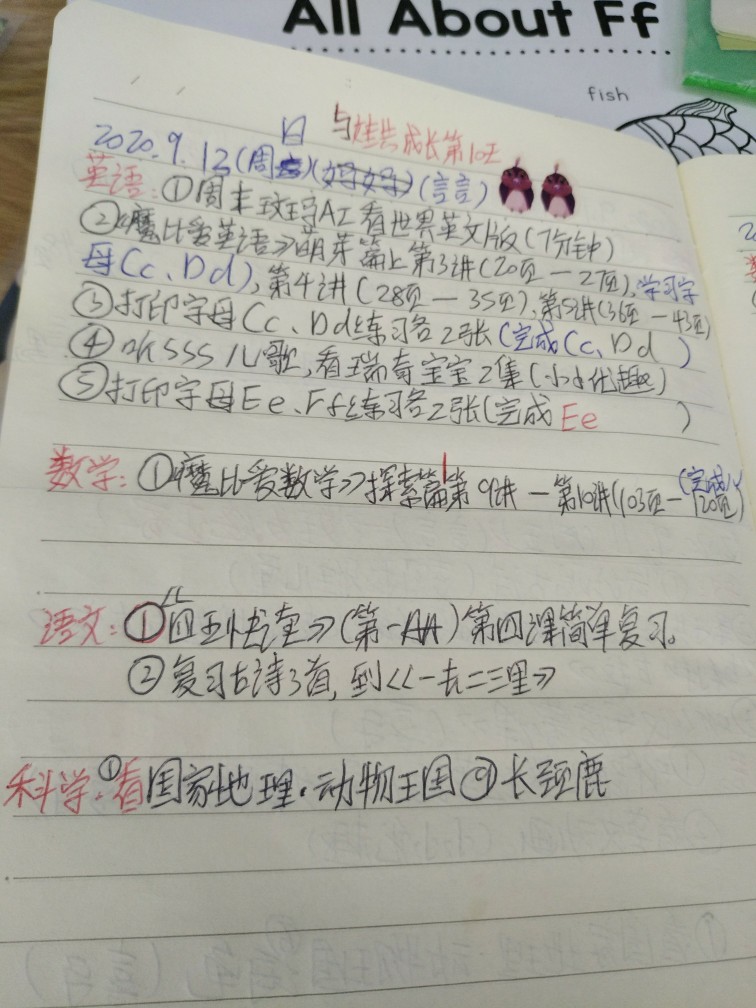 All About Ff
fish
与娃共成长第10天
日
2020.9.13(周)(妈妈)(言言)
英语:①周末斑马AI看世界英文版(7分钟)
②《魔比爱英语》萌芽篇上第3讲(20页—27页),学习字
母Cc、Dd),第4讲(28页—35页),第5讲(36页—43页)
③打印字母Cc、Dd练习各2张(完成Cc、Dd)
④听SSS儿歌,看瑞奇宝宝2集(小小优趣)
⑤打印字母Ee、Ff练习各2张(完成Ee)
数学:①《魔比爱数学》探索篇1第9讲—第10讲(103页—120页)
(完成)
语文:①《四五快读》(第一册)第四课简单复习。
②复习古诗3首,到《一去二三里》
科学:①看国家地理·动物王国④长颈鹿